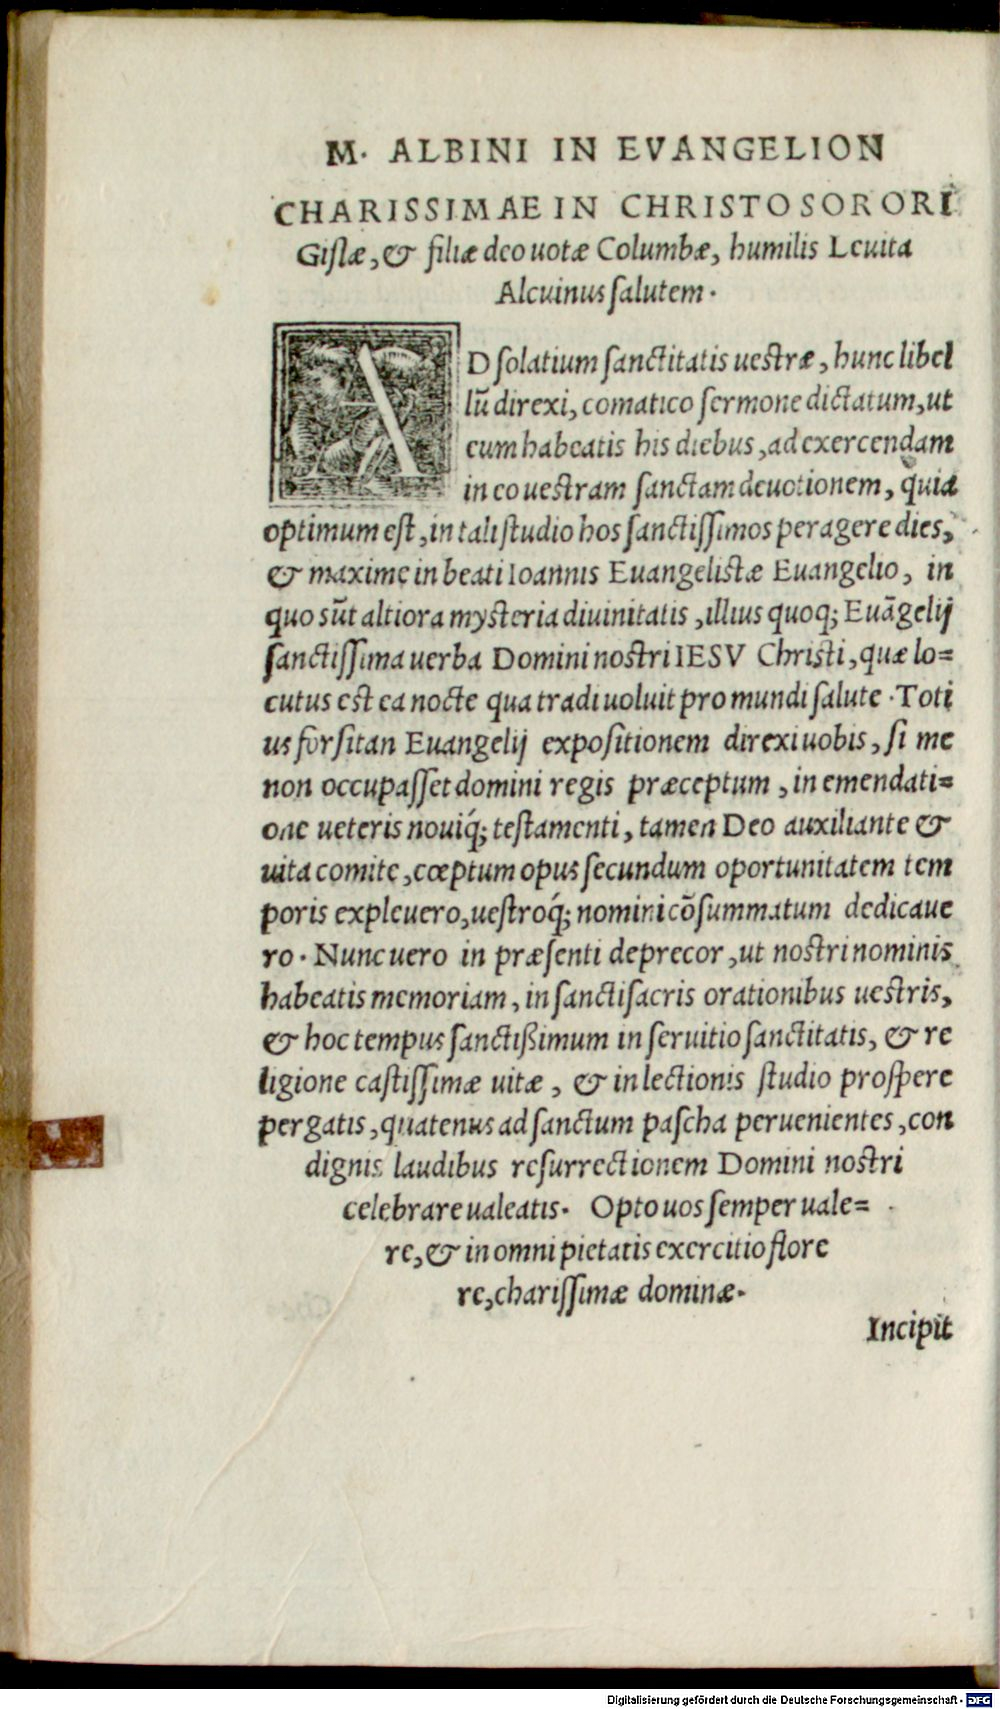 M. ALBINI IN EVANGELION
CHARISSIMAE IN CHRISTO SORORI
Gislæ, & filiæ deo uotæ Columbæ, humilis Leuita
Alcuinus salutem.
AD solatium sanctitatis uestræ, hunc libel
lũ direxi, comatico sermone dictatum, ut
cum habeatis his diebus, ad exercendam
in eo uestram sanctam deuotionem, quia
optimum est, in tali studio hos sanctissimos peragere dies,
& maxime in beati Ioannis Euangelistæ Euangelio, in
quo sũt altiora mysteria diuinitatis, illius quoq; Euãgelij
sanctissima uerba Domini nostri IESV Christi, quæ lo=
cutus est ea nocte qua tradi uoluit pro mundi salute. Toti
us forsitan Euangelij expositionem direxi uobis, si me
non occupasset domini regis præceptum, in emendati=
one ueteris nouiq́; testamenti, tamen Deo auxiliante &
uita comite, cœptum opus secundum oportunitatem tem
poris expleuero, uestroq́; nomini cõsummatum dedicaue
ro. Nunc uero in præsenti deprecor, ut nostri nominis
habeatis memoriam, in sancti sacris orationibus uestris,
& hoc tempus sanctißimum in seruitio sanctitatis, & re
ligione castissimæ uitæ, & in lectionis studio prospere
pergatis, quatenus ad sanctum pascha peruenientes, con
dignis laudibus resurrectionem Domini nostri
celebrare ualeatis. Opto uos semper uale=
re, & in omni pietatis exercitio flore
re, charissimæ dominæ.
Incipit
Digitalisierung gefördert durch die Deutsche Forschungsgemeinschaft - DFG